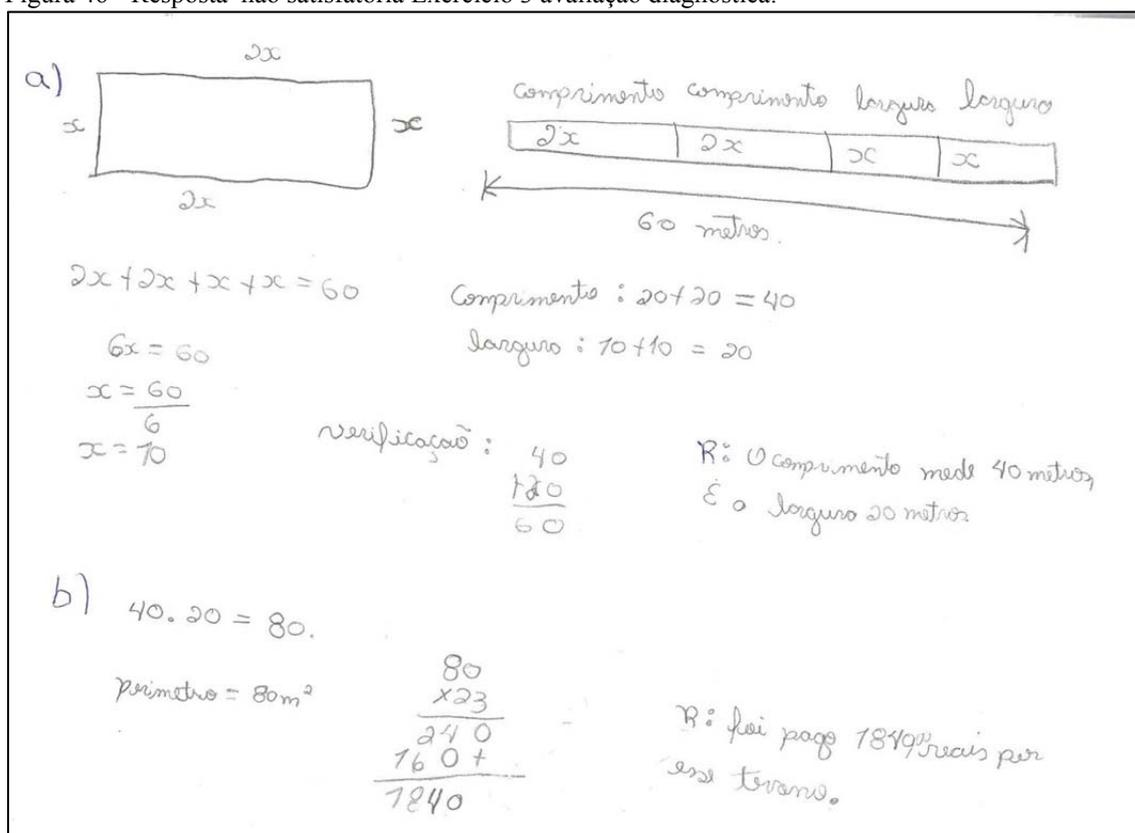 Figura 46 - Resposta não satisfatória Exercício 3 avaliação diagnóstica.
a)
2x
x
x
2x
comprimento comprimento largura largura
2x 2x x x
60 metros.
2x+2x+x+x=60
6x=60
x=60
6
x=10
Comprimento: 20+20=40
largura: 10+10=20
verificação:
40
+20
60
R: O comprimento mede 40 metros,
É a largura 20 metros
b)
40.20=80.
perimetro=80m²
80
x23
240
160+
1840
R: foi pago reais por
esse